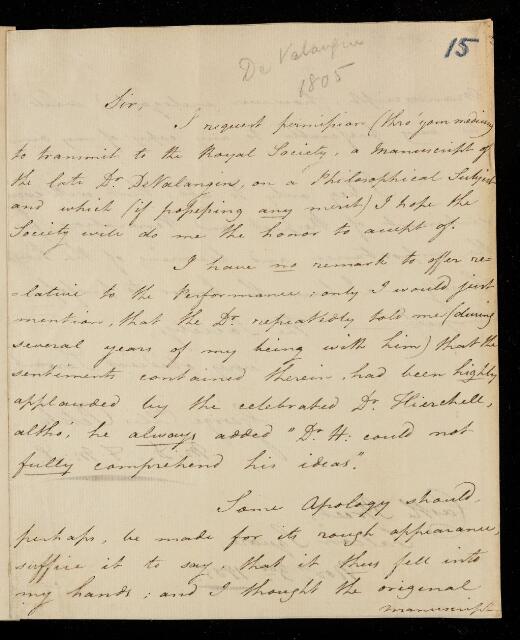 15
De Valangin
1805
Sir,
I request permission (thro' your medium)
to transmit to the Royal Society, a Manuscript of
the late Dr. DeValangin, on a Philosophical Subject
and which (if possessing any merit) I hope the
Society will do me the honor to accept of.
I have no remark to offer re-
-lative to the Performance; only I would just
mention, that the Dr. repeatedly told me (during
several years of my being with him) that the
sentiments contained therein, had been highly
applauded by the celebrated Dr. Hierchell,
altho', he always added "Dr. H: could not
fully comprehend his ideas".
Some Apology should,
perhaps, be made for its rough appearance,
suffice it to say, that it thus fell into
my hands; and I thought the original
manuscript